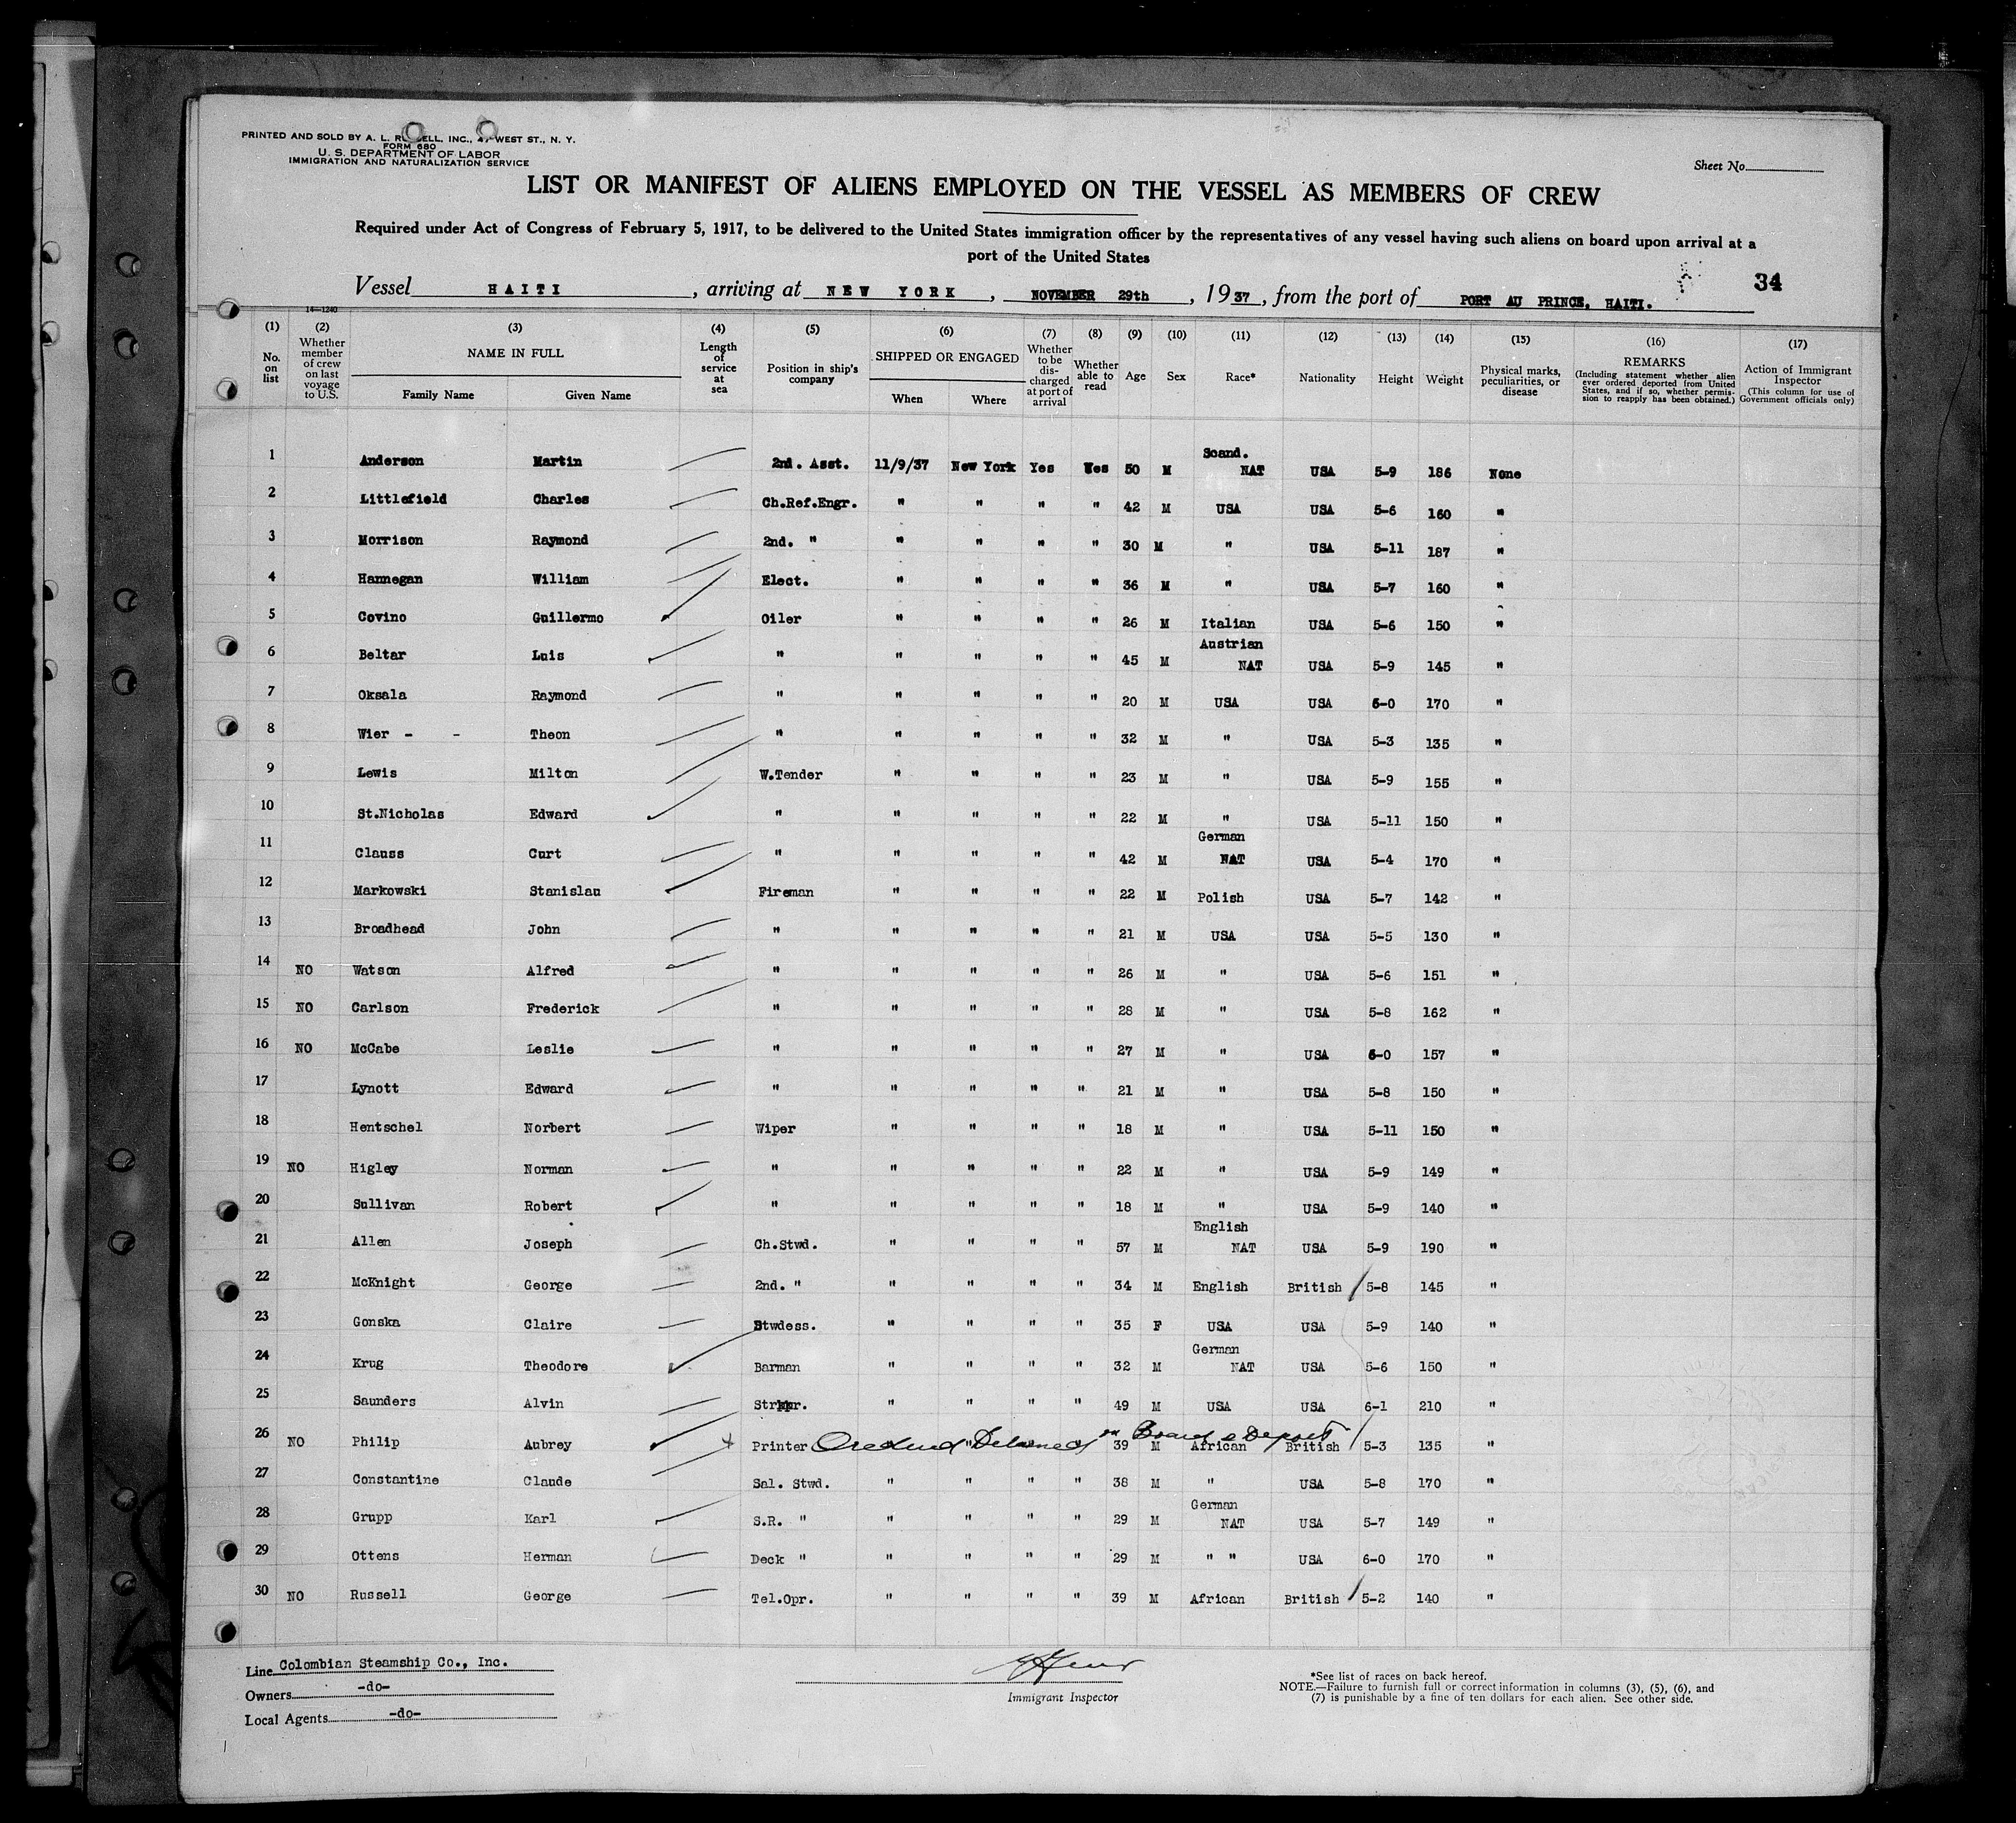 PRINTED AND SOLD BY A. L. R ELL, INC., WEST ST., N. Y.
FORM 680
U. S. DEPARTMENT OF LABOR
IMMIGRATION AND NATURALIZATION SERVICE
Sheet No.
LIST OR MANIFEST OF ALIENS EMPLOYED ON THE VESSEL AS MEMBERS OF CREW
Required under Act of Congress of February 5, 1917, to be delivered to the United States immigration officer by the representatives of any vessel having such aliens on board upon arrival at a
port of the United States
34
Vessel HAITI, arriving at NEW YORK, NOVEMBER 29th, 1937, from the port of PORT AU PRINCE, HAITI.
14—1240
(1) (2) (3) (4) (5) (6) (7) (8) (9) (10) (11) (12) (13) (14) (15) (16) (17)
No. on list | Whether member of crew on last voyage to U.S. | NAME IN FULL | Family Name | Given Name | Length of service at sea | Position in ship's company | SHIPPED OR ENGAGED | When | Where | Whether to be discharged at port of arrival | Whether able to read | Age | Sex | Race* | Nationality | Height | Weight | Physical marks, peculiarities, or disease | REMARKS (Including statement whether alien ever ordered deported from United States, and if so, whether permission to reapply has been obtained.) | Action of Immigrant Inspector (This column for use of Government officials only)
1 Anderson Martin 2nd. Asst. 11/9/37 New York Yes Yes 50 M Scand. NAT USA 5-9 186 None
2 Littlefield Charles Ch.Ref.Engr. " " " " 42 M USA USA 5-6 160 "
3 Morrison Raymond 2nd. " " " " " 30 M " USA 5-11 187 "
4 Hannegan William Elect. " " " " 36 M " USA 5-7 160 "
5 Covino Guillermo Oiler " " " " 26 M Italian USA 5-6 150 "
6 Beltar Luis " " " " " 45 M Austrian NAT USA 5-9 145 "
7 Oksala Raymond " " " " " 20 M USA USA 6-0 170 "
8 Wier - - Theon " " " " " 32 M " USA 5-3 135 "
9 Lewis Milton W.Tender " " " " 23 M " USA 5-9 155 "
10 St.Nicholas Edward " " " " " 22 M " USA 5-11 150 "
11 Clauss Curt " " " " " 42 M German NAT USA 5-4 170 "
12 Markowski Stanislau Fireman " " " " 22 M Polish USA 5-7 142 "
13 Broadhead John " " " " " 21 M USA USA 5-5 130 "
14 NO Watson Alfred " " " " " 26 M " USA 5-6 151 "
15 NO Carlson Frederick " " " " " 28 M " USA 5-8 162 "
16 NO McCabe Leslie " " " " " 27 M " USA 6-0 157 "
17 Lynott Edward " " " " " 21 M " USA 5-8 150 "
18 Hentschel Norbert Wiper " " " " 18 M " USA 5-11 150 "
19 NO Higley Norman " " " " " 22 M " USA 5-9 149 "
20 Sullivan Robert " " " " " 18 M " USA 5-9 140 "
21 Allen Joseph Ch.Stwd. " " " " 57 M English NAT USA 5-9 190 "
22 McKnight George 2nd. " " " " " 34 M English British 5-8 145 "
23 Gonska Claire Stwdess. " " " " 35 F USA USA 5-9 140 "
24 Krug Theodore Barman " " " " 32 M German NAT USA 5-6 150 "
25 Saunders Alvin " " " " 49 M USA USA 6-1 210 "
26 NO Philip Aubrey Printer Ordered Detained on Board & Deport 39 M African British 5-3 135 "
27 Constantine Claude Sal. Stwd. " " " " 38 M " USA 5-8 170 "
28 Grupp Karl S.R. " " " " " 29 M German NAT USA 5-7 149 "
29 Ottens Herman Deck " " " " " 29 M " " USA 6-0 170 "
30 NO Russell George Tel.Opr. " " " " 39 M African British 5-2 140 "
Line Colombian Steamship Co., Inc.
Owners -do-
Local Agents -do-
Immigrant Inspector
*See list of races on back hereof.
NOTE.—Failure to furnish full or correct information in columns (3), (5), (6), and
(7) is punishable by a fine of ten dollars for each alien. See other side.